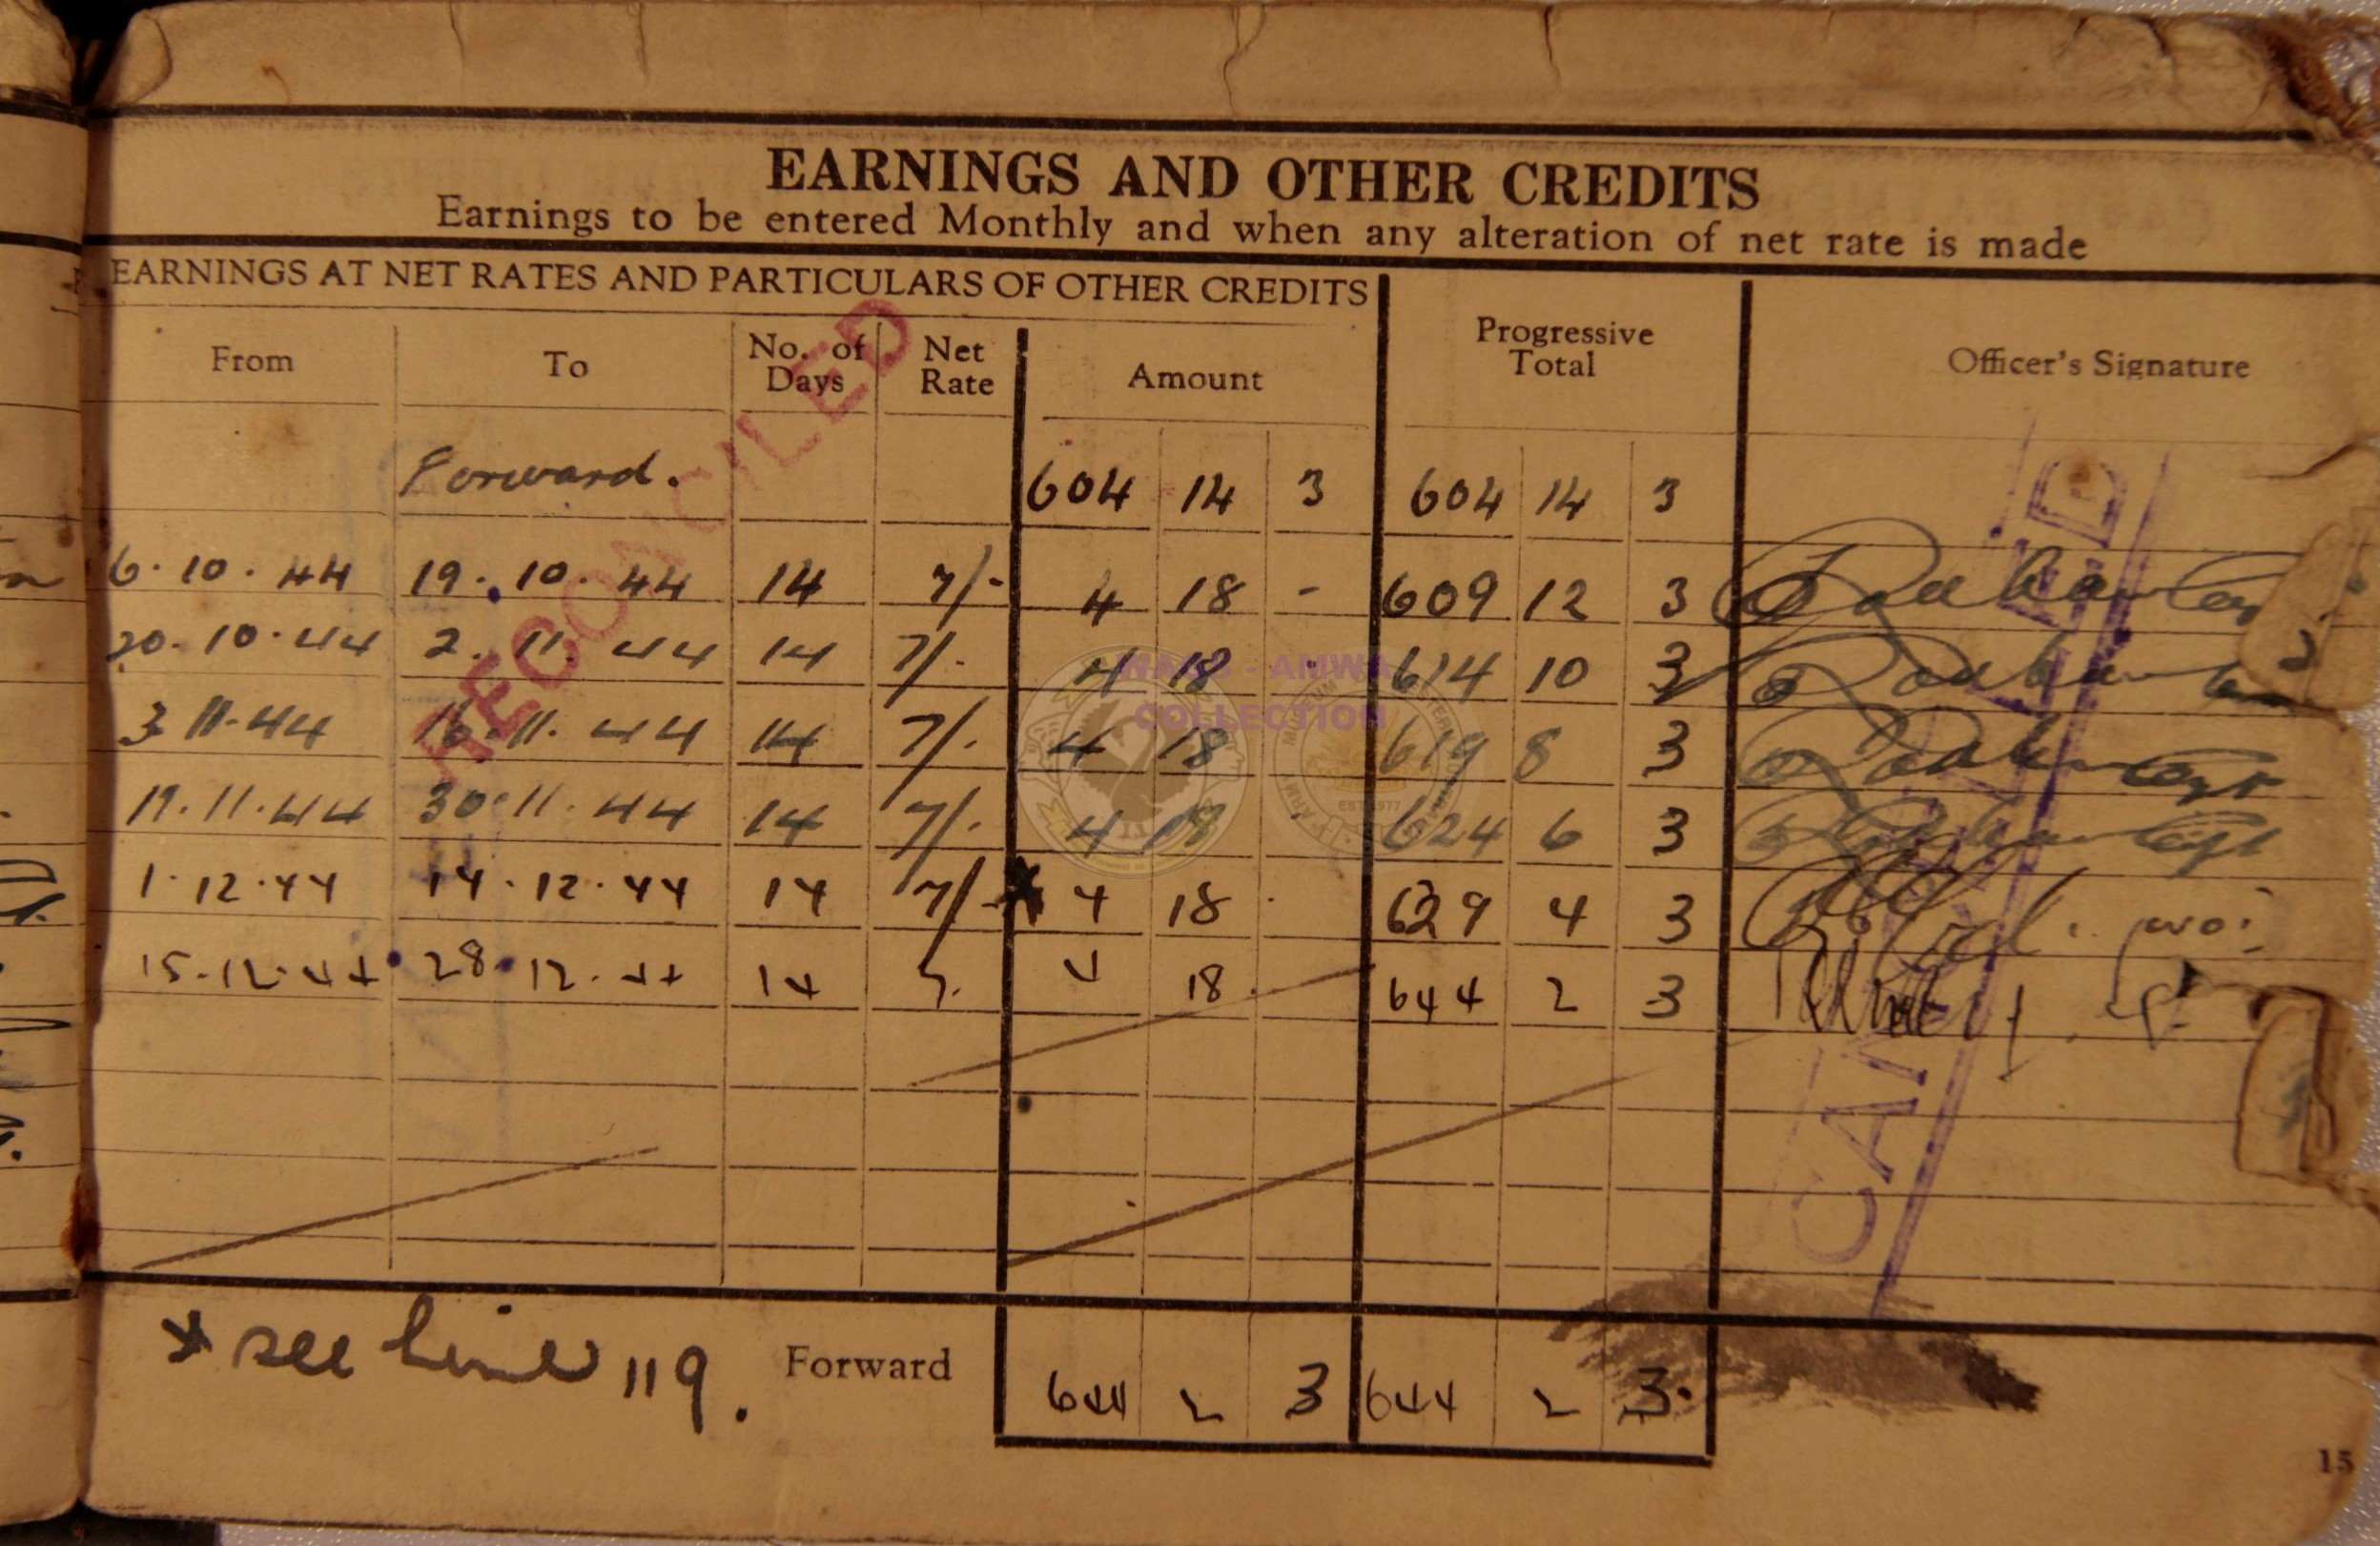 EARNINGS AND OTHER CREDITS
Earnings to be entered Monthly and when any alteration of net rate is made
EARNINGS AT NET RATES AND PARTICULARS OF OTHER CREDITS
From To No. of Days Net Rate Amount Progressive Total Officer's Signature
Forward. 604 14 3 604 14 3
6.10.44 19.10.44 14 7/- 4 18 - 609 12 3
20.10.44 2.11.44 14 7/. 4 18 . 614 10 3
3 11.44 16.11.44 14 7/. 4 18 619 8 3
17.11.44 30.11.44 14 7/. 4 18 . 624 6 3
1.12.44 14.12.44 14 7/- * 4 18 . 629 4 3
15.12.44 28.12.44 14 7. 4 18. 644 2 3
* see line 119. Forward 644 2 3 644 2 3.
15
RECONCILED
CANCELLED
WAMS - AMWA
COLLECTION
EST 1977